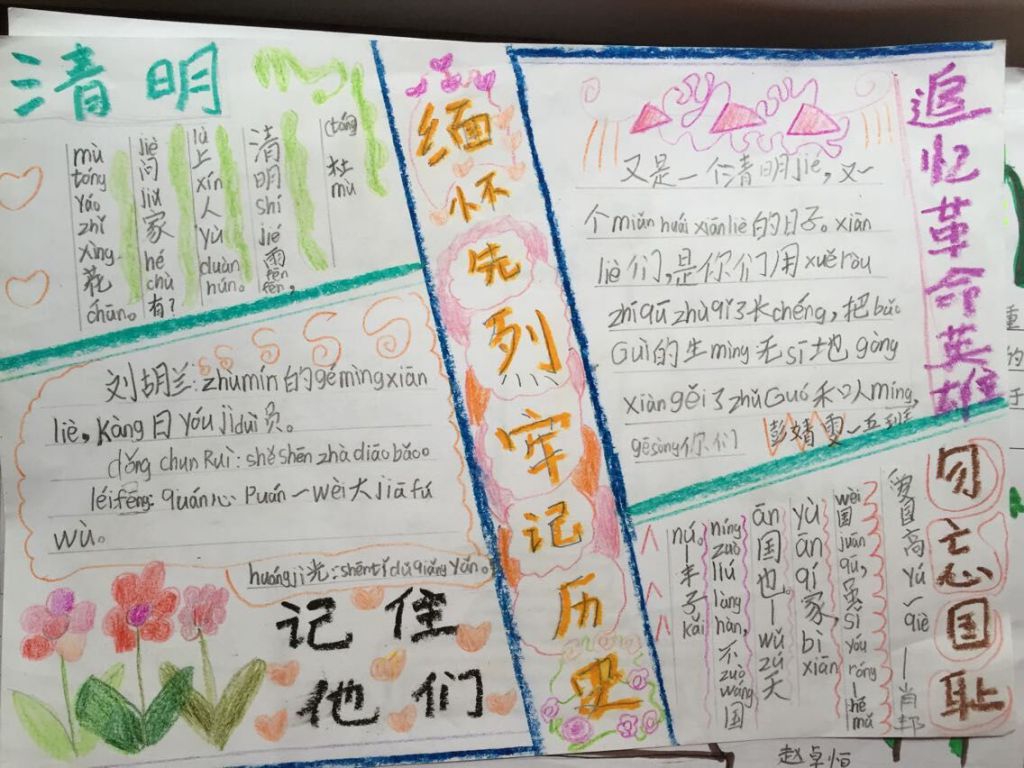 清明
(táng)
杜
mù
清明shí jié雨fēn fēn,
lù上xín人yù duàn hún。
jiè问jiǔ家hé chù有?
mù tóng yáo zhǐ xìng花chūn。
刘胡兰:zhūmín的gémìngxiān
liè,kàng日yóujìduì员。
dǒng chun Ruì:shě shēn zhà diāo bǎo。
léifēng:quán心 Puán一wèi大jiā fú
wù。
huángji光:shēntǐ dǔ qiāng yǎn。
记住
他们
缅怀先烈牢记历史
追忆革命英雄
又是一个清明jié,又一
个miǎn huái xiānliè的日子。xiān
liè们,是你们用xuě ròu
zhīqū zhù qǐ了长chéng,把bǎo
Guì的生mìng无sī地gòng
xiàn gěi了zhǔ Guó和人mín,
gēsòng你们
彭婧雯一五班
勿忘国耻
高yú一qiè——肖邦
wèi国juān qū,虽sǐ yóu róng—hé mǎ
yù ān qí家,bì xiān
ān国也。—wú zú天
níng zuò liú làng hàn,不zuò wáng国
nú。—丰子kǎi
赵卓恒